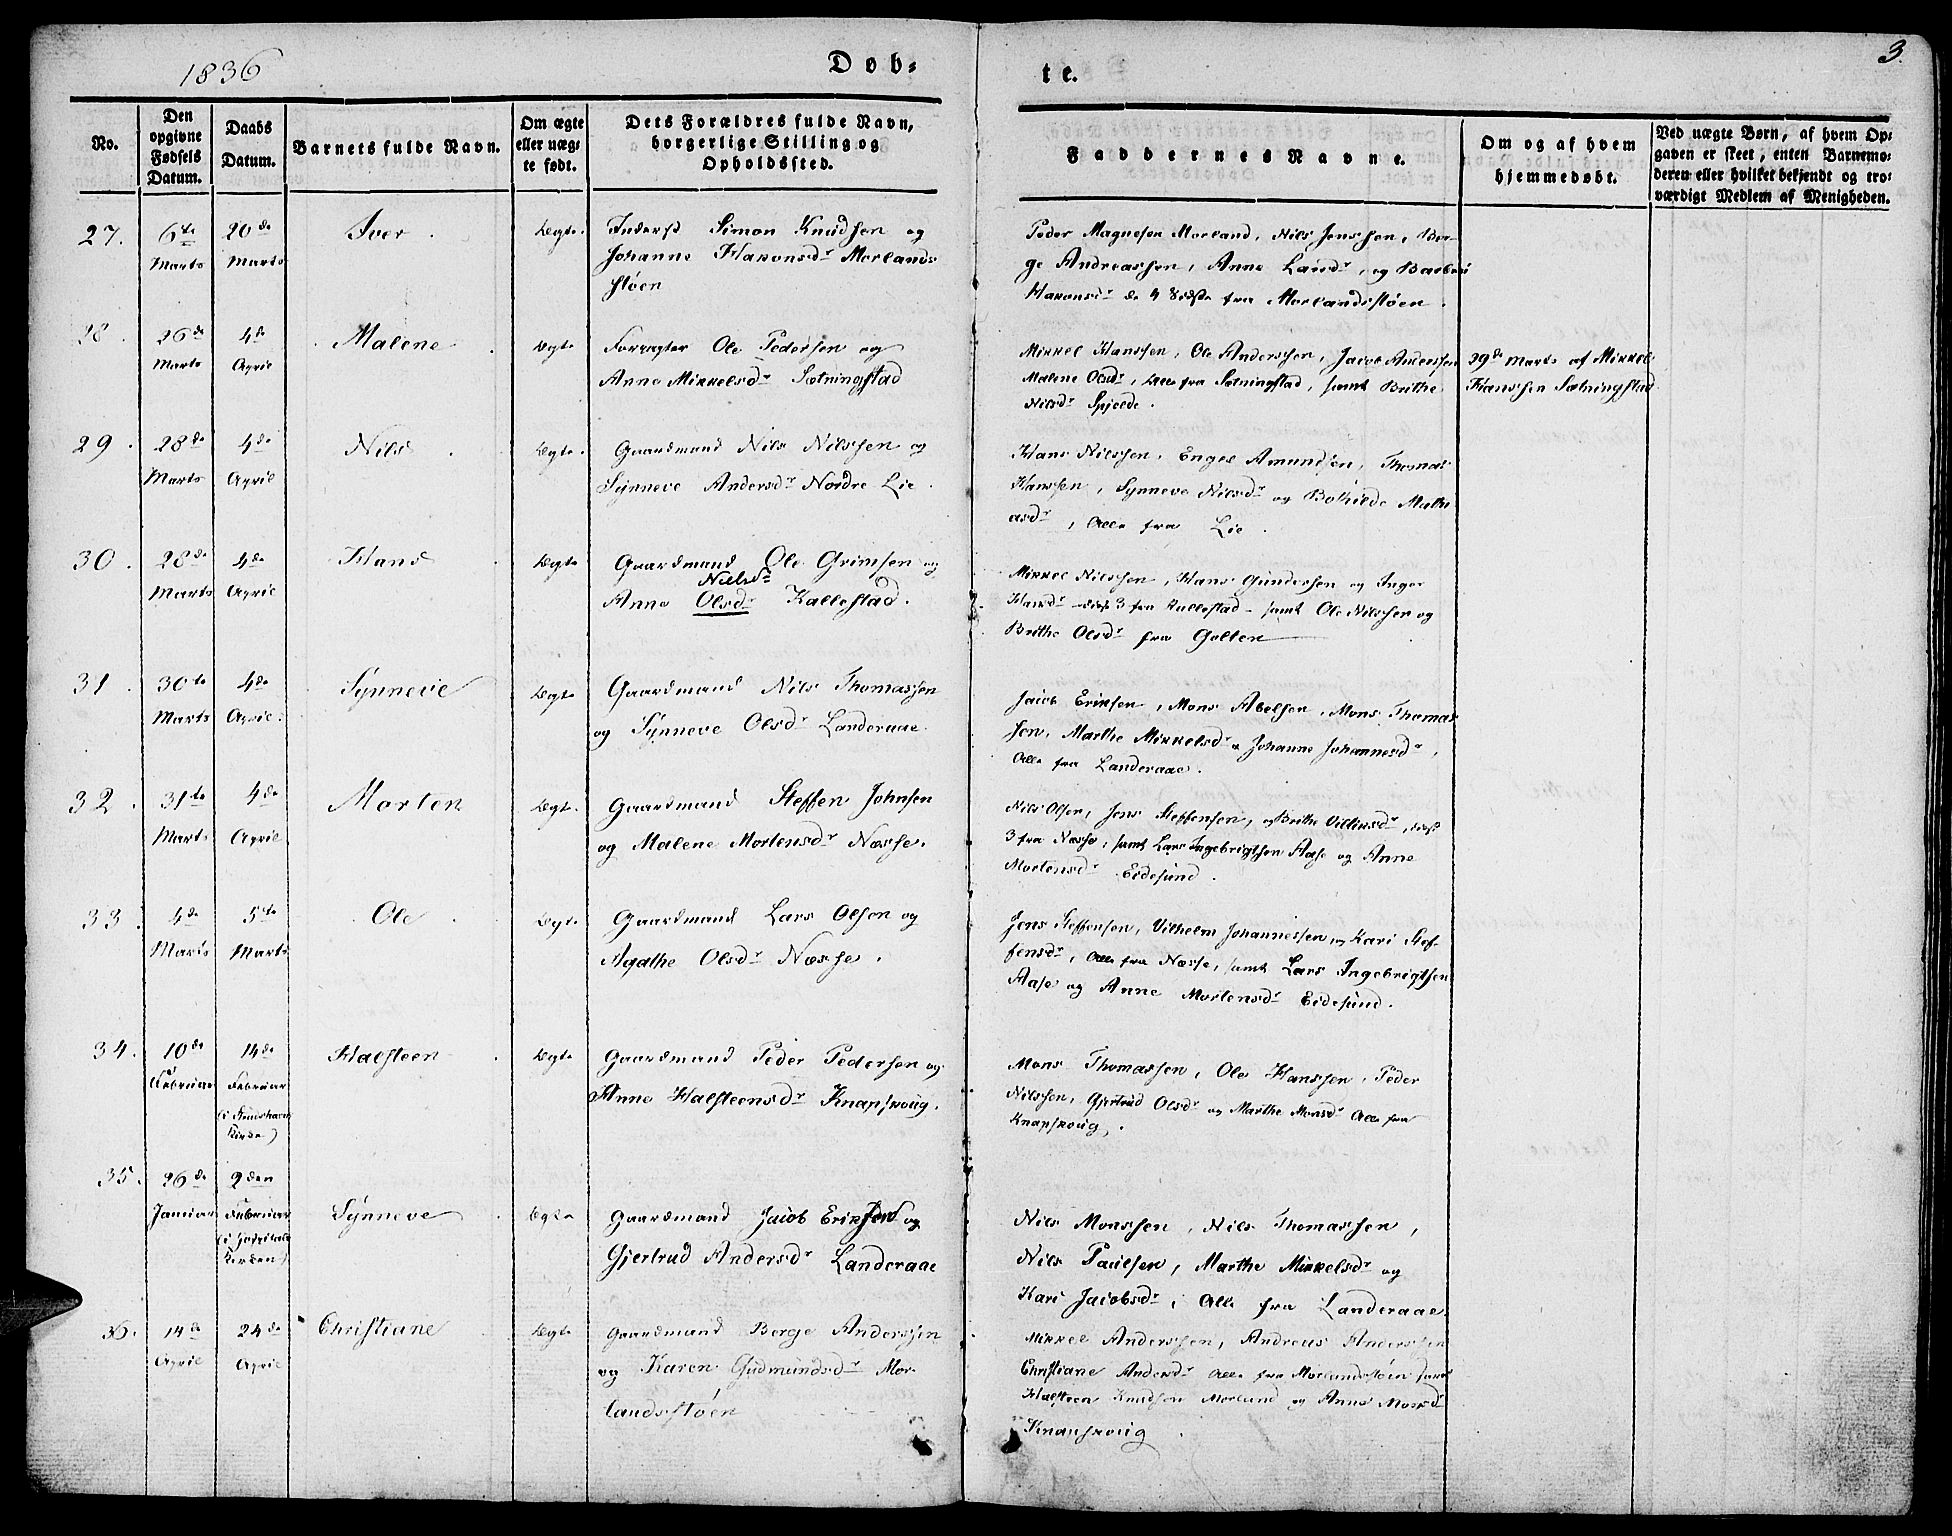 1836
Døb-
te.
3.
No.
Den opgivne Fødsels Datum.
Daabs Datum.
Barnets fulde Navn.
Om ægte eller uægte født.
Dets Forældres fulde Navn, borgerlige Stilling og Opholdssted.
Faddernes Navne.
Om og af hvem hjemmedøbt.
Ved uægte Børn, af hvem Opgaven er skeet, enten Barnemoderen eller hvilket bekjendt og troværdigt Medlem af Menigheden.
27. 6te Marts 20de Marts Iver. Ægte. Inderst Simon Knudsen og
Johanne Hakonsdr Morlands
støen
Peder Magnesen Morland, Nils Jenssen, Ber-
ge Andreassen, Anne Larsdr, og Barbro
Hakonsdr de 4 sidste fra Morlandsstøen.
28. 26de Marts 4de April Malene. Ægte Forpagter Ole Pedersen og
Anne Mikkelsdr Sætningstad
Mikkel Hanssen, Ole Anderssen, Jacob Anderssen
Malene Olsdr, Alle fra Sætningstad, samt Brithe
Nilsdr Spjelde.
29de Marts af Mikkel
Hanssen Sætningstad.
29. 28de Marts 4de April Nils. Ægte. Gaardmand Nils Nilssen og
Synneve Andersdr Nordre Lie.
Hans Nilssen, Engel Amundsen, Thomas
Hanssen, Synneve Nilsdr og Bothilde Math
asdr, Alle fra Lie.
30. 28de Marts 4de April Hans Ægte Gaardmand Ole Grimsen og
Nielsdr
Anne Olsdr Kallestad.
Mikkel Nilssen, Hans Gundersen og Inger
Hansdr disse 3 fra Kallestad - samt Ole Nilssen og
Brithe Olsdr fra Golten
31. 30te Marts 4de April. Synneve Ægte Gaardmand Nils Thomassen
og Synneve Olsdr Landeraae.
Jacob Eriksen, Mons Abelsen, Mons Thomas
sen, Marthe Mikkelsdr & Johanne Johannesdr,
Alle fra Landeraae.
32. 31te Marts 4de April Morten Ægte. Gaardmand Steffen Johnsen
og Malene Mortensdr Næsse.
Nils Olsen, Jens Steffensen, og Brithe Villumsdr, disse
3 fra Næsse, samt Lars Ingebrigtsen Aase og Anne
Mortensdr Eidesund.
33. 4de Marts 5te Marts Ole. Ægte Gaardmand Lars Olsen og
Agathe Olsdr Næsse.
Jens Steffensen, Vilhelm Johannessen, og Kari Stef-
fensdr, Alle fra Næsse, samt Lars Ingebrigtsen
Aase og Anne Mortensdr Eidesund.
34. 10de Februar 14de Februar Halsteen. Ægte Gaardmand Peder Pedersen og
Anne Halsteensdr Knapskoug.
Mons Thomassen, Ole Hanssen, Peder
Nilssen, Gjertrud Olsdr og Marthe Monsdr Alle fra
Knapskoug.
35. 26de Januar 2den Februar
(i Hospitals
Kirken)
Synneve. Ægte Gaardmand Jacob Eriksen og
Gjertrud Andersdr Landeraae
Nils Monssen, Nils Thomassen,
Nils Paulsen, Marthe Mikkelsdr og
Kari Jacobsdr, Alle fra Landeraae.
36. 14de April 24de April Christiane Ægte Gaardmand Berge Anderssen
og Karen Gudmundsdr Mor
landsstøen
Mikkel Anderssen, Andreas Anderssen
Christiane Andersdr Alle fra Morlandsstøen samt
Halsteen Knudsen Morland og Anne Monsdr
Knapskoug.